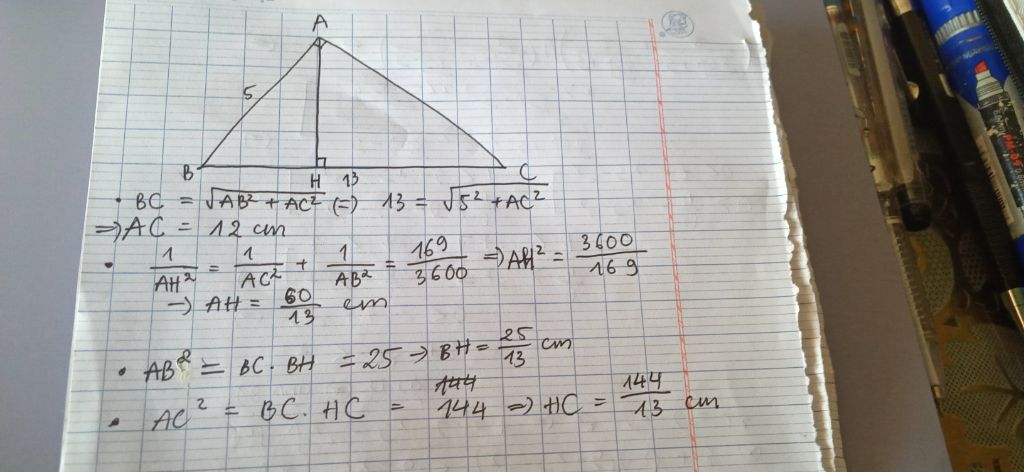 A
5
B
H
13
C
• BC = √(AB² + AC²) (=) 13 = √(5² + AC²)
=> AC = 12 cm
• 1/AH² = 1/AC² + 1/AB² = 169/3600 => AH² = 3600/169
→ AH = 60/13 cm
• AB² = BC. BH = 25 → BH = 25/13 cm
144
• AC² = BC. HC = 144 => HC = 144/13 cm